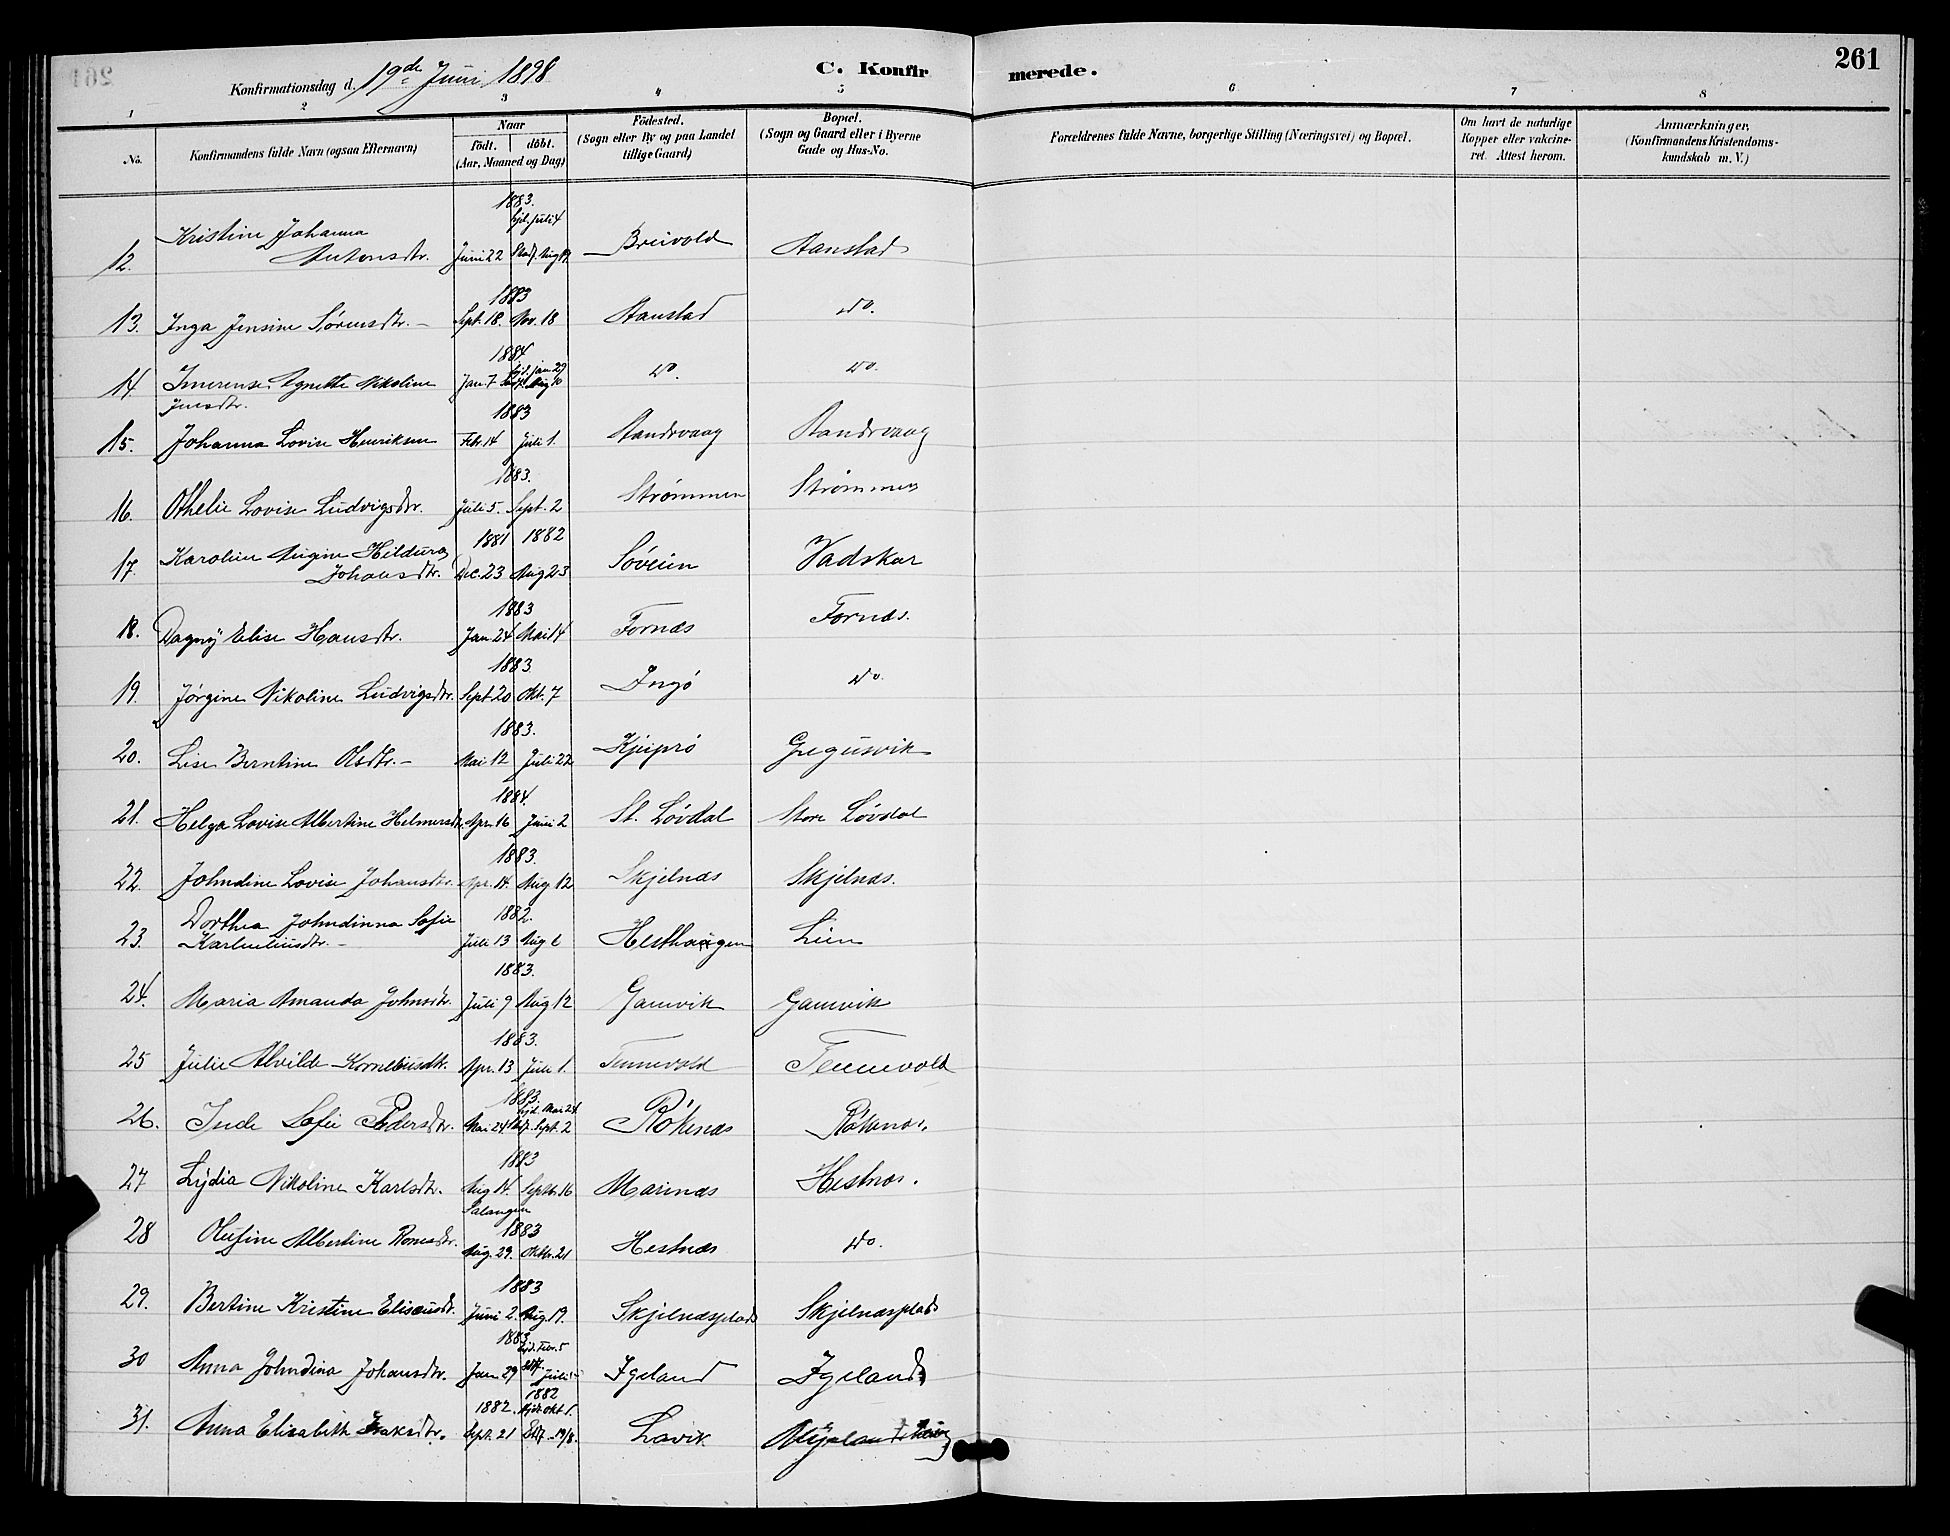 261
Konfirmationsdag d. 19de Juni 1898
C. Konfir merede.
1 2 3 4 5 6 7 8
No.
Konfirmandens fulde Navn (ogsaa Efternavn)
Naar
födt. döbt.
(Aar, Maaned og Dag)
Födested.
(Sogn eller By og paa Landet
tillige Gaard)
Bopæl.
(Sogn og Gaard eller i Byerne
Gade og Hus-No.
Forældrenes fulde Navne, borgerlige Stilling (Næringsvei) og Bopæl.
Om havt de naturlige
Kopper eller vakcine-
ret. Attest herom.
Anmærkninger,
(Konfirmandens Kristendoms-
kundskab m. V.)
1883.
hjd. Juli 4
12. Kristine Johanna
Antonsdtr. Juni 22 Stadf. Aug 19 Breivold Aanstad
1883
13. Inga Jensine Sörensdtr. – Sept. 18. Nov. 18 Aanstad do.
1884
hjd. Jan. 29
14. Imerense Agnette Nikoline Jan. 7 Aug 10 do. do.
Jensdtr.
1883
15. Johanna Lovise Henriksen Febr. 14 Juli 1. Sandvaag Sandvaag
1883.
16. Othelie Lovise Ludvigsdtr. Juli 5. Sept. 2 Strömmen Strömmen
1881 1882
17. Karoline Augine Hildura
Johansdtr. Dec. 23 Aug 23 Söveien Vadskar
1883
18. Dagny Elise Hansdtr. Jan. 24 Mai 14 Fornæs Fornæs.
1883
19. Jörgine Nikoline Ludvigsdtr. Sept. 20 Okt. 7 Ingö do.
1883.
20. Lise Berntine Olsdtr. – Mai 12 Juli 22 Kjeiprö Gregusvik
1884.
21. Helga Lovise Albertine Helmersdtr. Apr. 16 Juni 2 St. Lövdal Store Lövdal
1883.
22. Johndine Lovise Johansdtr. Apr. 14. Aug. 12 Skjelnæs Skjelnæs.
1882.
23. Dorthea Johndinna Sofie
Karlueliusdtr. – Juli 13 Aug 6 Hesthaugen Lien
1883.
24. Maria Amanda Johnsdtr. Juli 9 Aug 12 Gamvik Gamvik
1883.
25 Julie Alvilde Korneliusdtr. Apr. 13 Juli 1. Tennevold Tennevold
1883.
hjd. Mai 24
26. Inde Sofie Pedersdtr. Mai 24 Stdf. Sept. 2 Rökenæs Rökenæs.
1883
27 Lydia Nikoline Karlsdtr. Aug 14. Septbr. 16 Marinæs Hestnæs.
Salangen
1883
28 Olufine Albertine Aug. 29. Oktbr. 21 Hestnæs do.
1883
29. Bertine Kristine Eliseusdtr. Juni 2 Aug. 19. Skjelnæsplads Skjelnæsplads
1883.
hjd. Febr. 5
30 Anna Johndina Johansdtr. Jan 29 Stdf. Juli 1 Igeland Igeland
1882
1882. hjdt. Okt 1.
31. Anna Elisabeth Isaksdtr. Sept. 21 Stdf. 19/8. Lavik